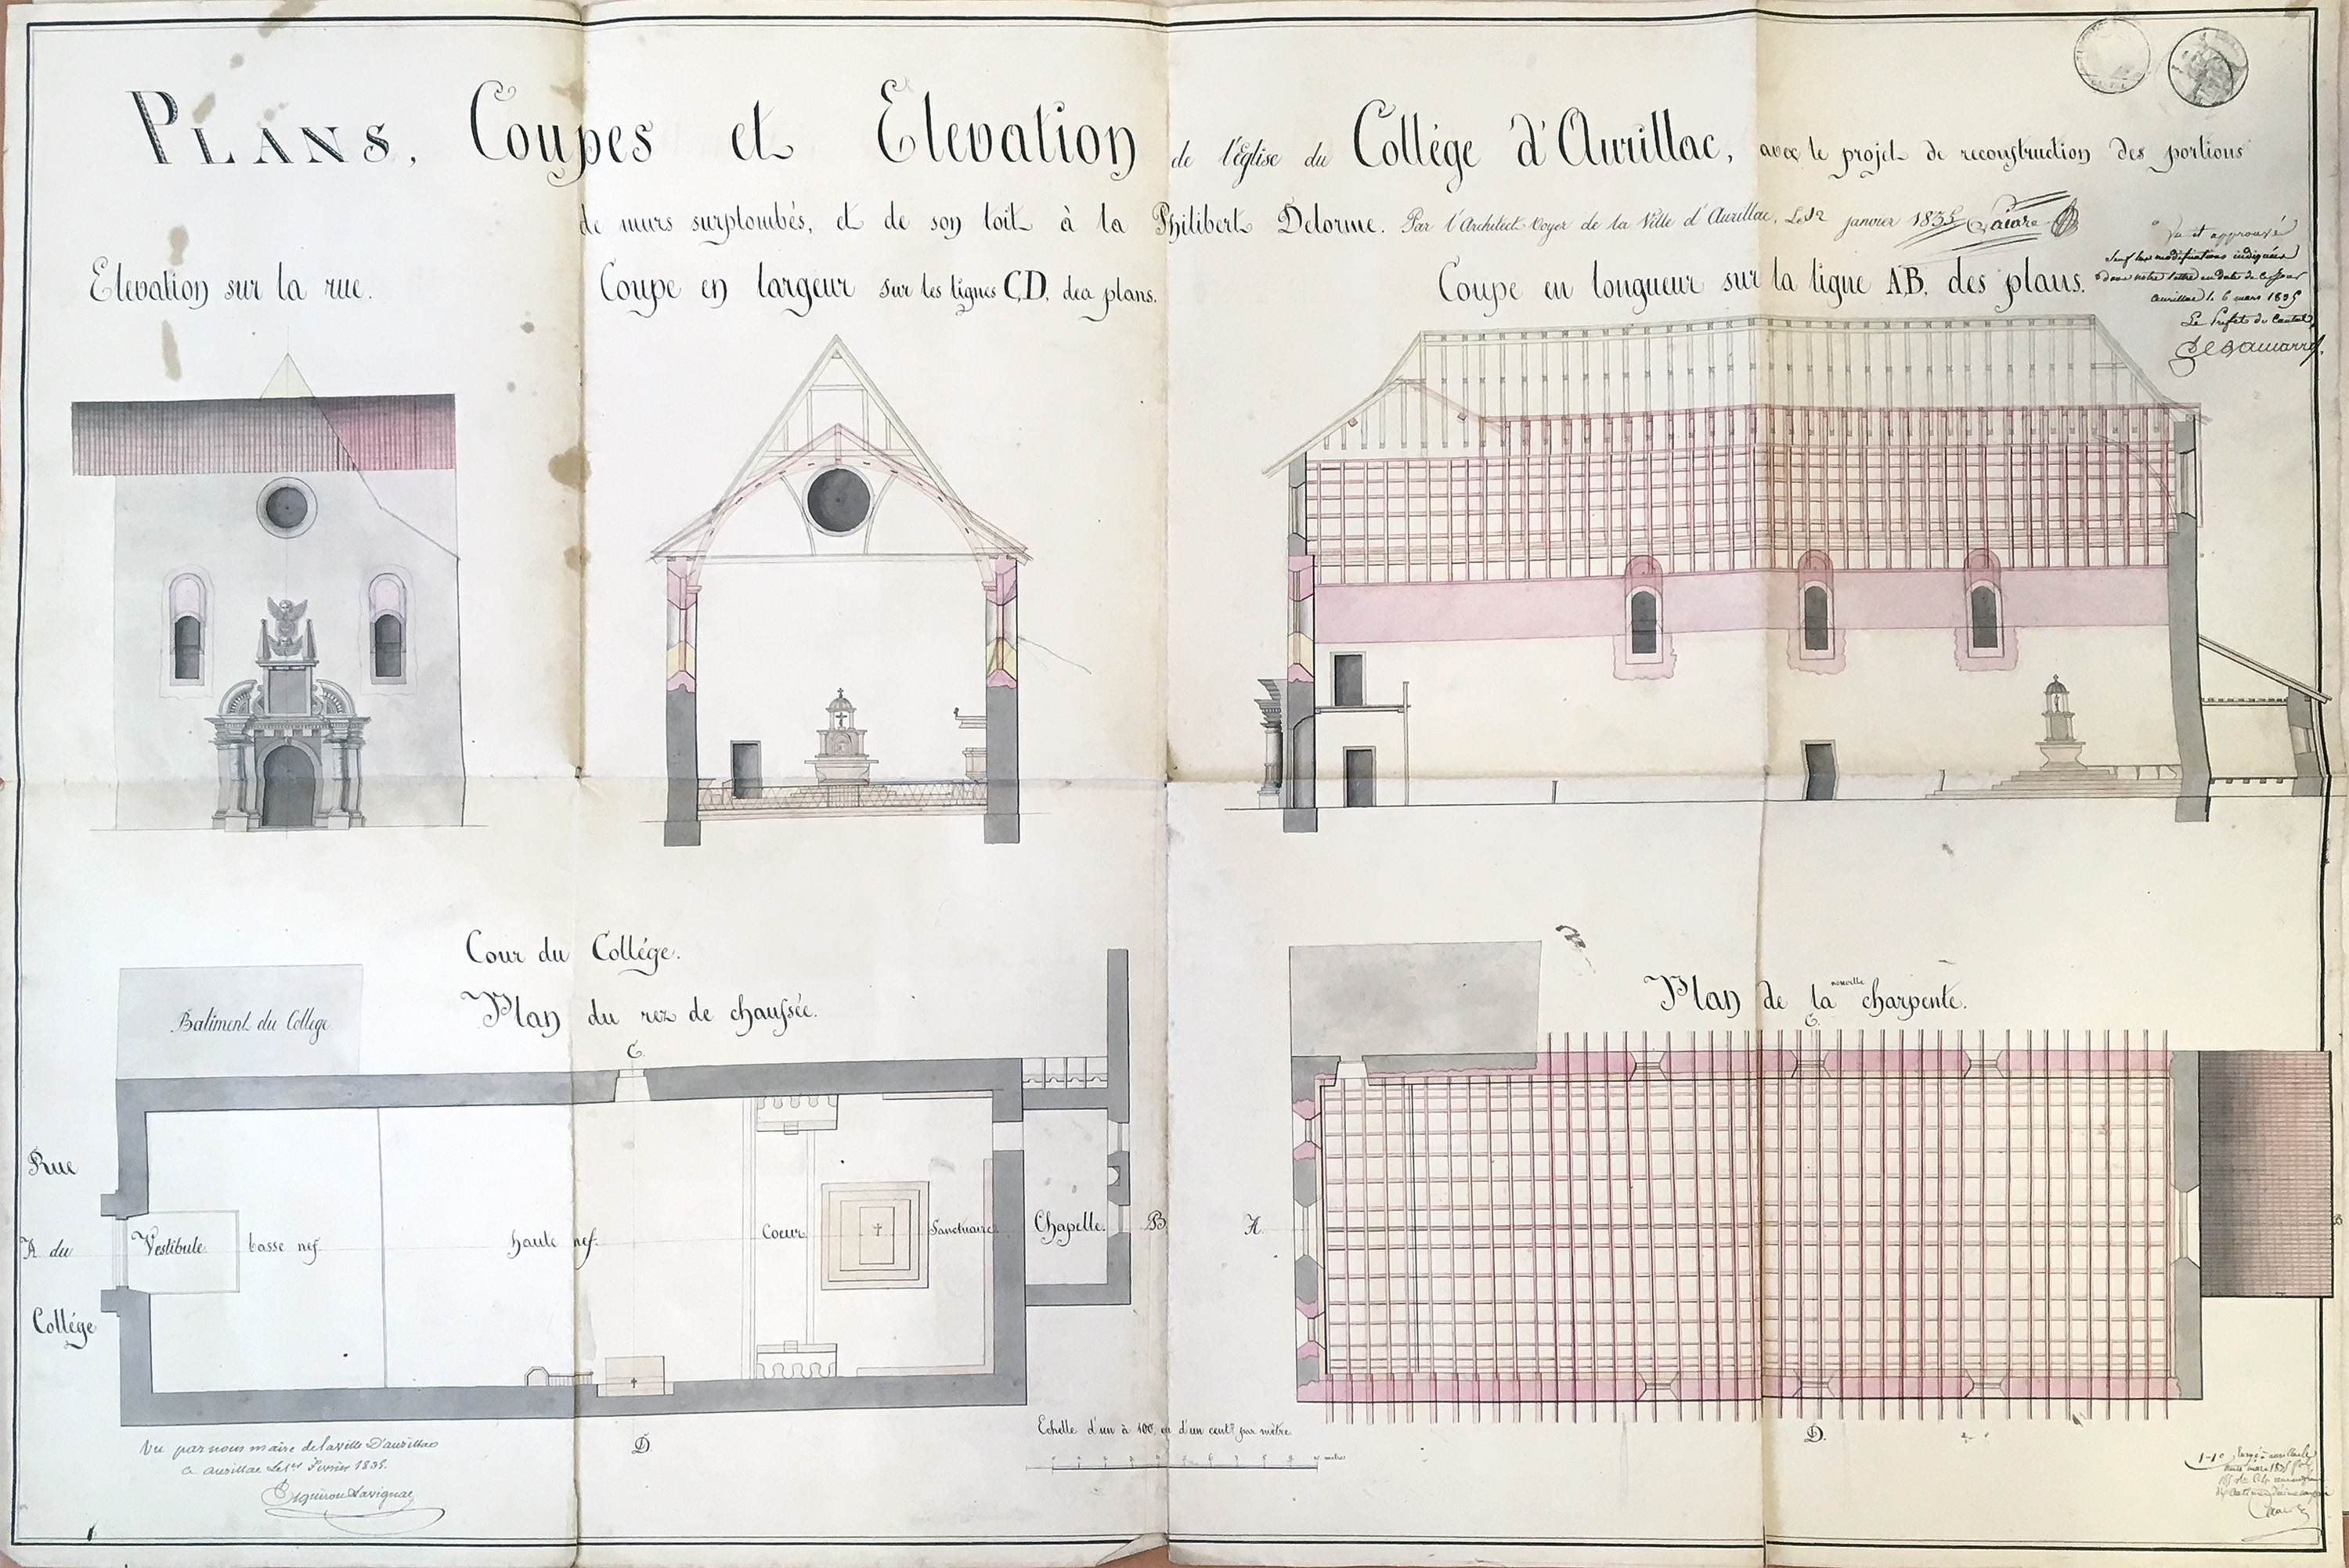 PLANS, Coupes et Elevation de l'Eglise du Collége d'Aurillac, avec le projet de reconstruction des portions
de murs surplombés, et de son toit à la Philibert Delorme. Par l'Architecte Voyer de la Ville d'Aurillac, Le 12 janvier 1835
Vu et approuvé
Sauf les modifications indiquées
dans notre lettre en date de ce jour
Aurillac le 6 mars 1835
Le Préfet du Cantal
Elevation sur la rue.
Coupe en largeur sur les lignes C,D, des plans.
Coupe en longueur sur la ligne A,B, des plans.
Cour du Collége.
Plan du rez de chaussée.
Batiment du College
C.
Rue
A. du
Collége
Vestibule
basse nef.
haute nef.
Coeur
Sanctuaire
Chapelle.
B.
D.
Plan de la nouvelle charpente.
C.
A.
B
D.
Echelle d'un à 100, ou d'un centre par mètre.
Vu par nous maire de la ville D'aurillac
a aurillac Le 1er Fevrier 1835.
Esquirou Lavignac